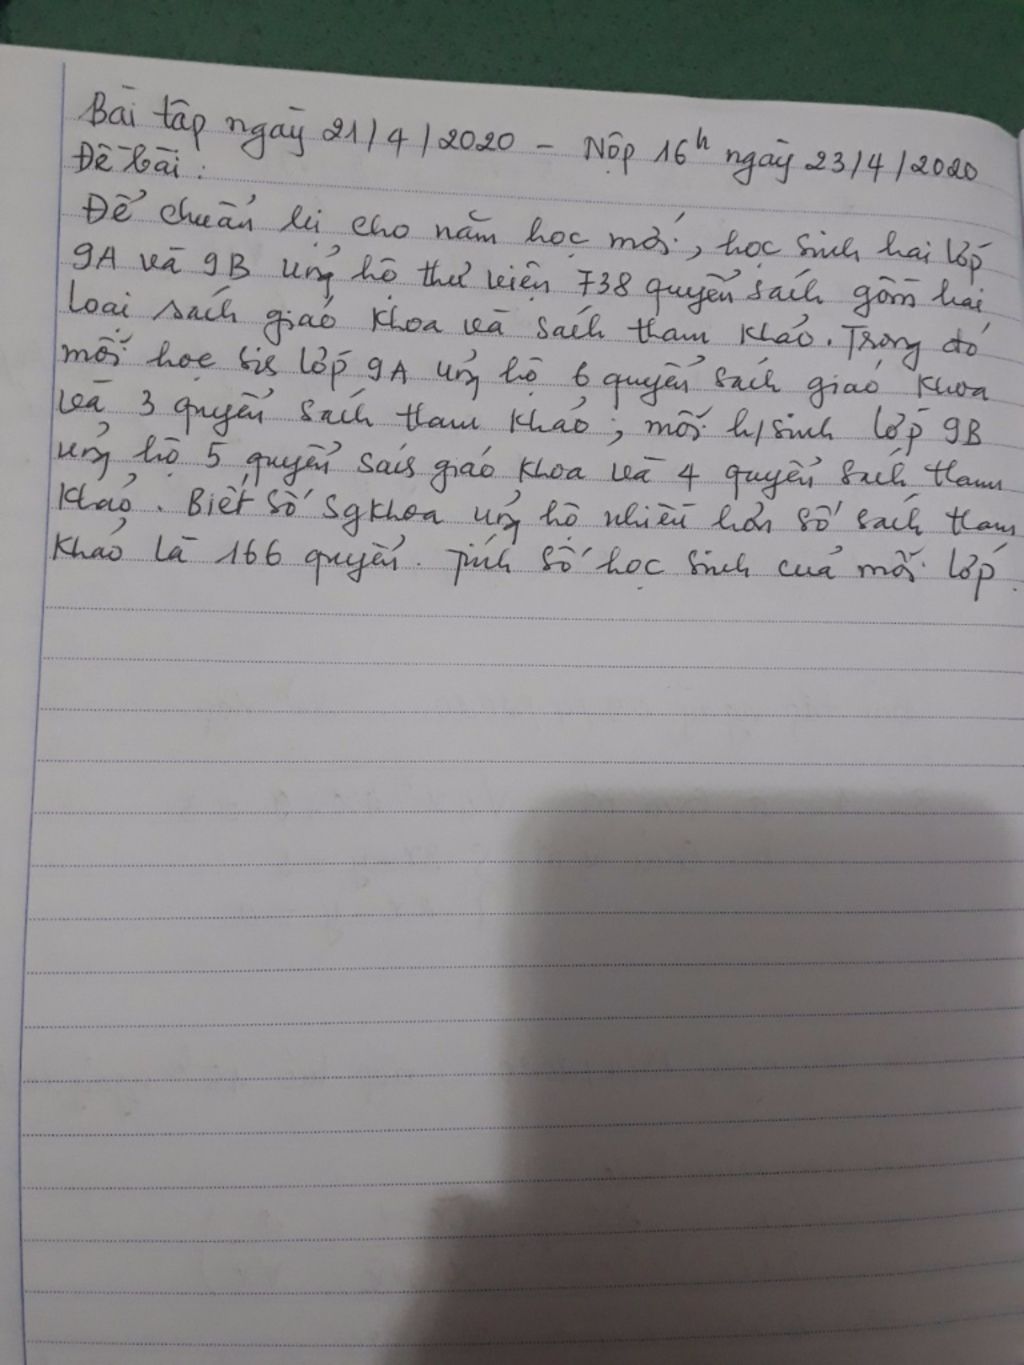 Bài tập ngày 21/4/2020 - Nộp 16h ngày 23/4/2020
Đề bài:
Để chuẩn bị cho năm học mới, học sinh hai lớp
9A và 9B ủng hộ thư viện 738 quyển sách gồm hai
loại sách giáo khoa và sách tham khảo. Trong đó
mỗi học sis lớp 9A ủng hộ 6 quyển sách giáo khoa
và 3 quyển sách tham khảo; mỗi h/sinh lớp 9B
ủng hộ 5 quyển sác giáo khoa và 4 quyển sách tham
khảo. Biết số sgkhoa ủng hộ nhiều hơn số sách tham
khảo là 166 quyển. Tính số học sinh của mỗi lớp.